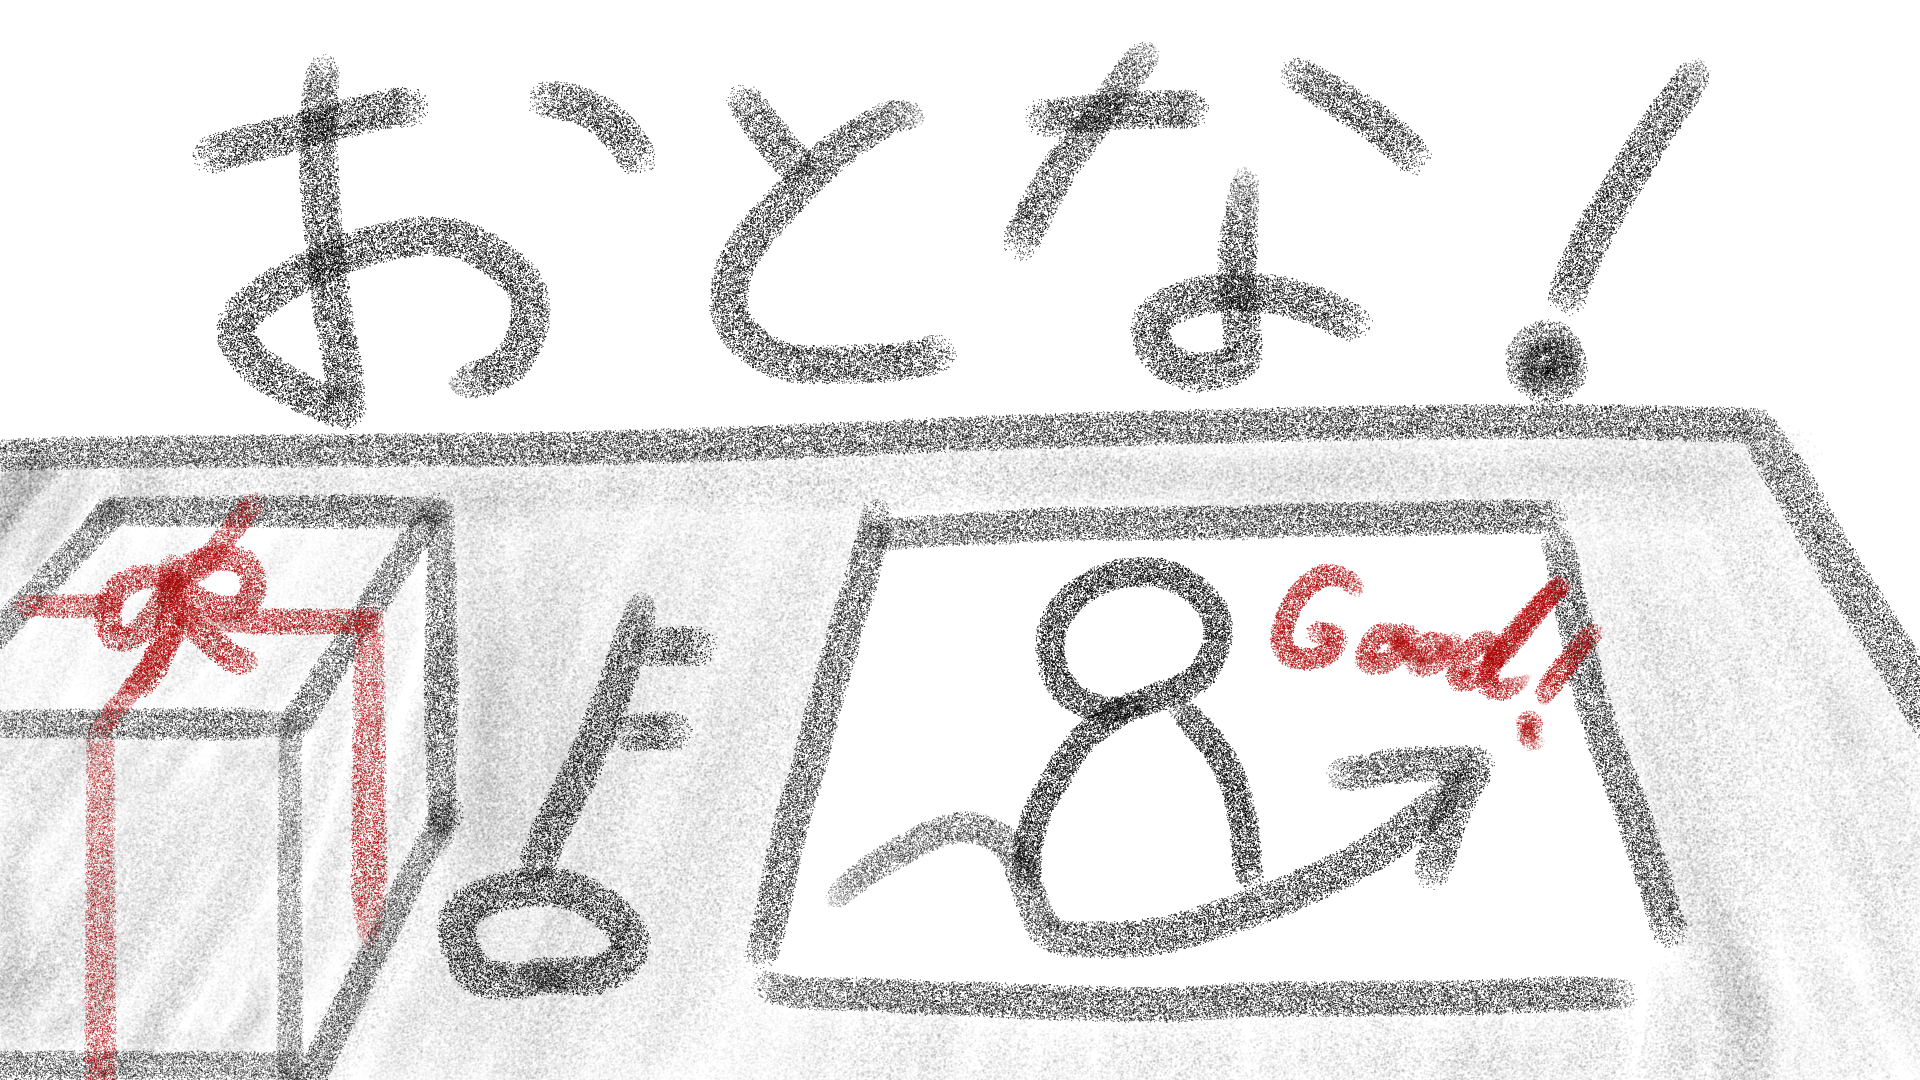 おとな!
Good!